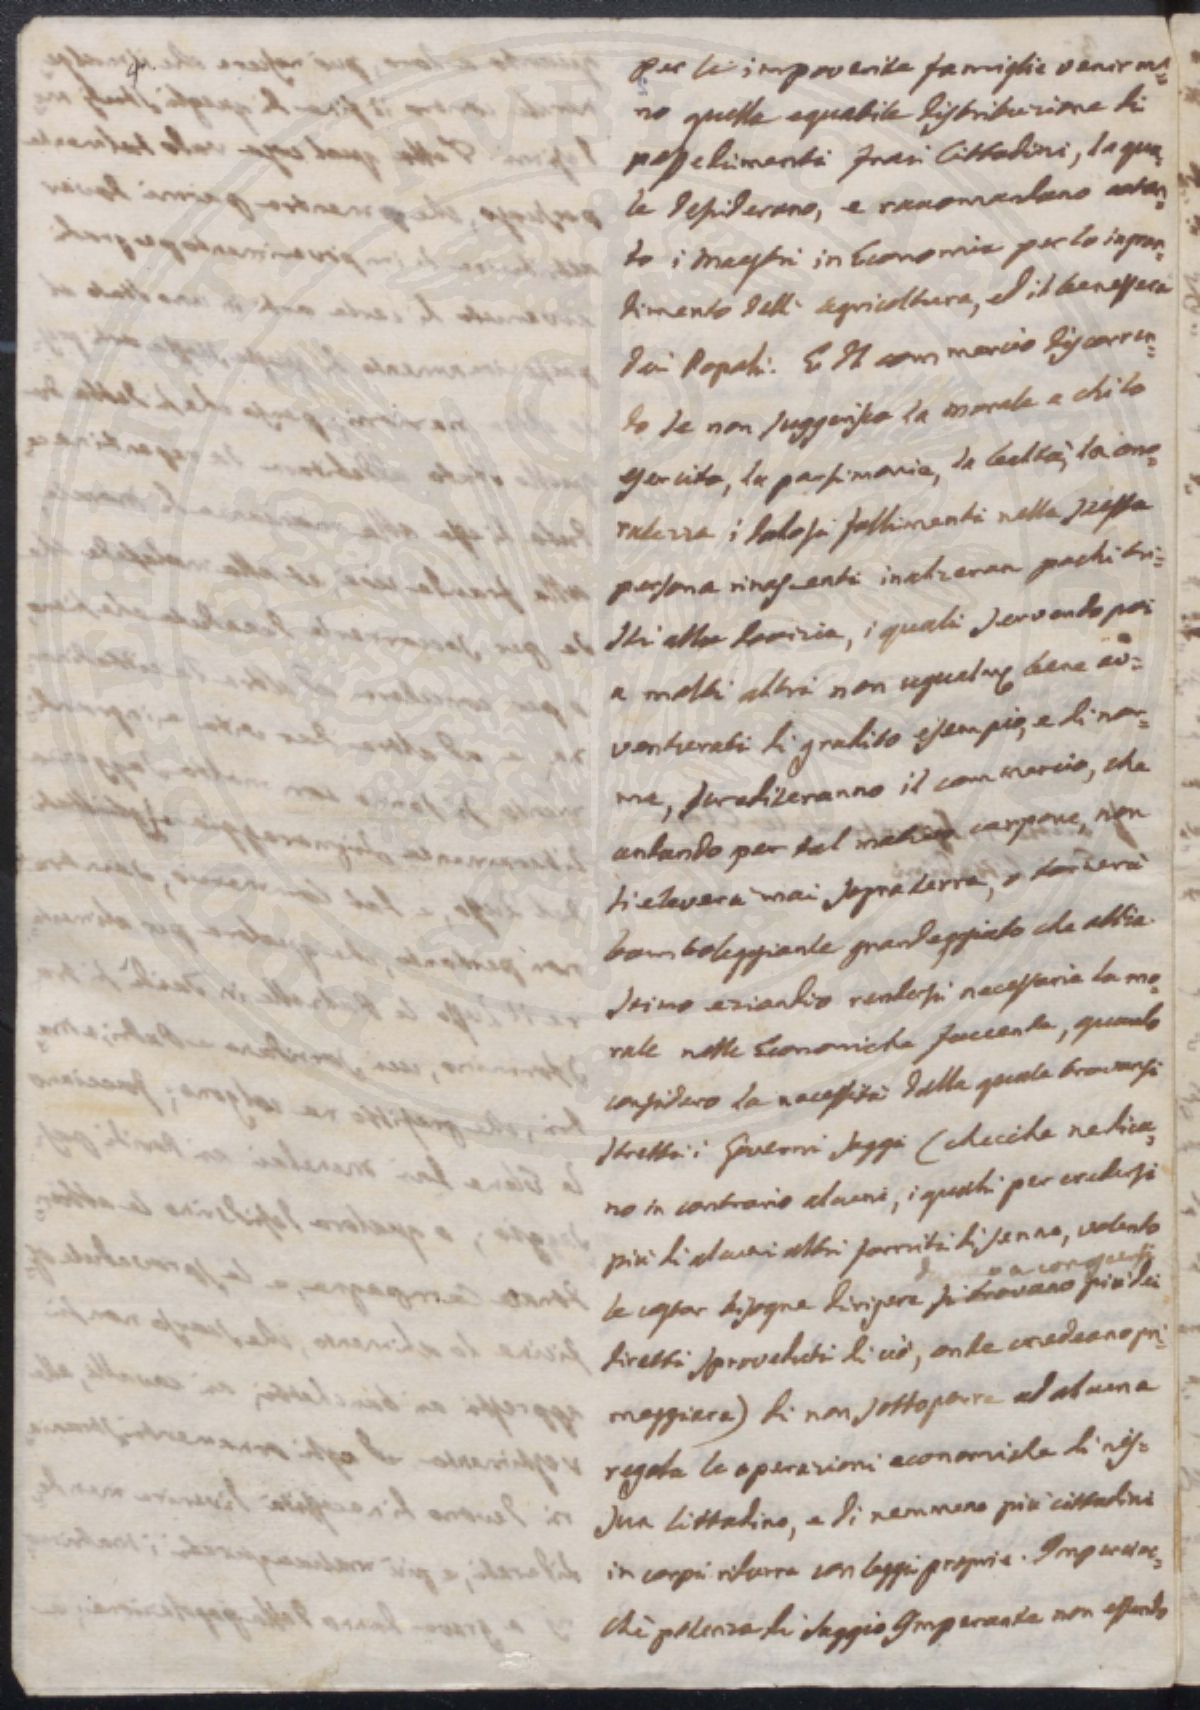 per le impoverite famiglie venir me-
no quella equabile distribuzione di
possedimenti frai Cittadini, la qua-
le desiderano, e raccomandano cotan-
to i Maestri in Economia per lo ingran-
dimento dell' agricoltura, ed il benessere
dei Popoli. E di commercio discorren-
do se non suggerisca la morale a chi lo
esercita, la parsimonia, la lealtà, la ono-
ratezza i dolosi fallimenti nella stessa
persona rinascenti inalzeran pochi tri-
sti alla dovizia, i quali servendo poi
a molti altri non ugualm.e bene av-
venturati di gradito esempio, e di nor-
ma, screditeranno il commercio, che
andando per tal maniera carpone, non
si eleverà mai sopra terra, o tornerà
bamboleggiante grandeggiato che abbia.
Stimo eziandio rendersi necessaria la mo-
rale nelle Economiche faccende, quando
considero la necessità dalla quale trovansi
stretti i Governi saggi (checchè ne dica-
no in contrario alcuni, i quali per credersi
più di alcuni altri forniti di senno, volendo
le cose a bisogna dirigere si trovano più dei
diretti sproveduti di ciò, onde credeano pri-
meggiare) di non sottoporre ad alcuna
regola le operazioni economiche di nes-
sun Cittadino, e di nemmeno più cittadini
in corpi ridurre con leggi proprie. Imperoc-
chè potenza di saggio Imperante non essendo